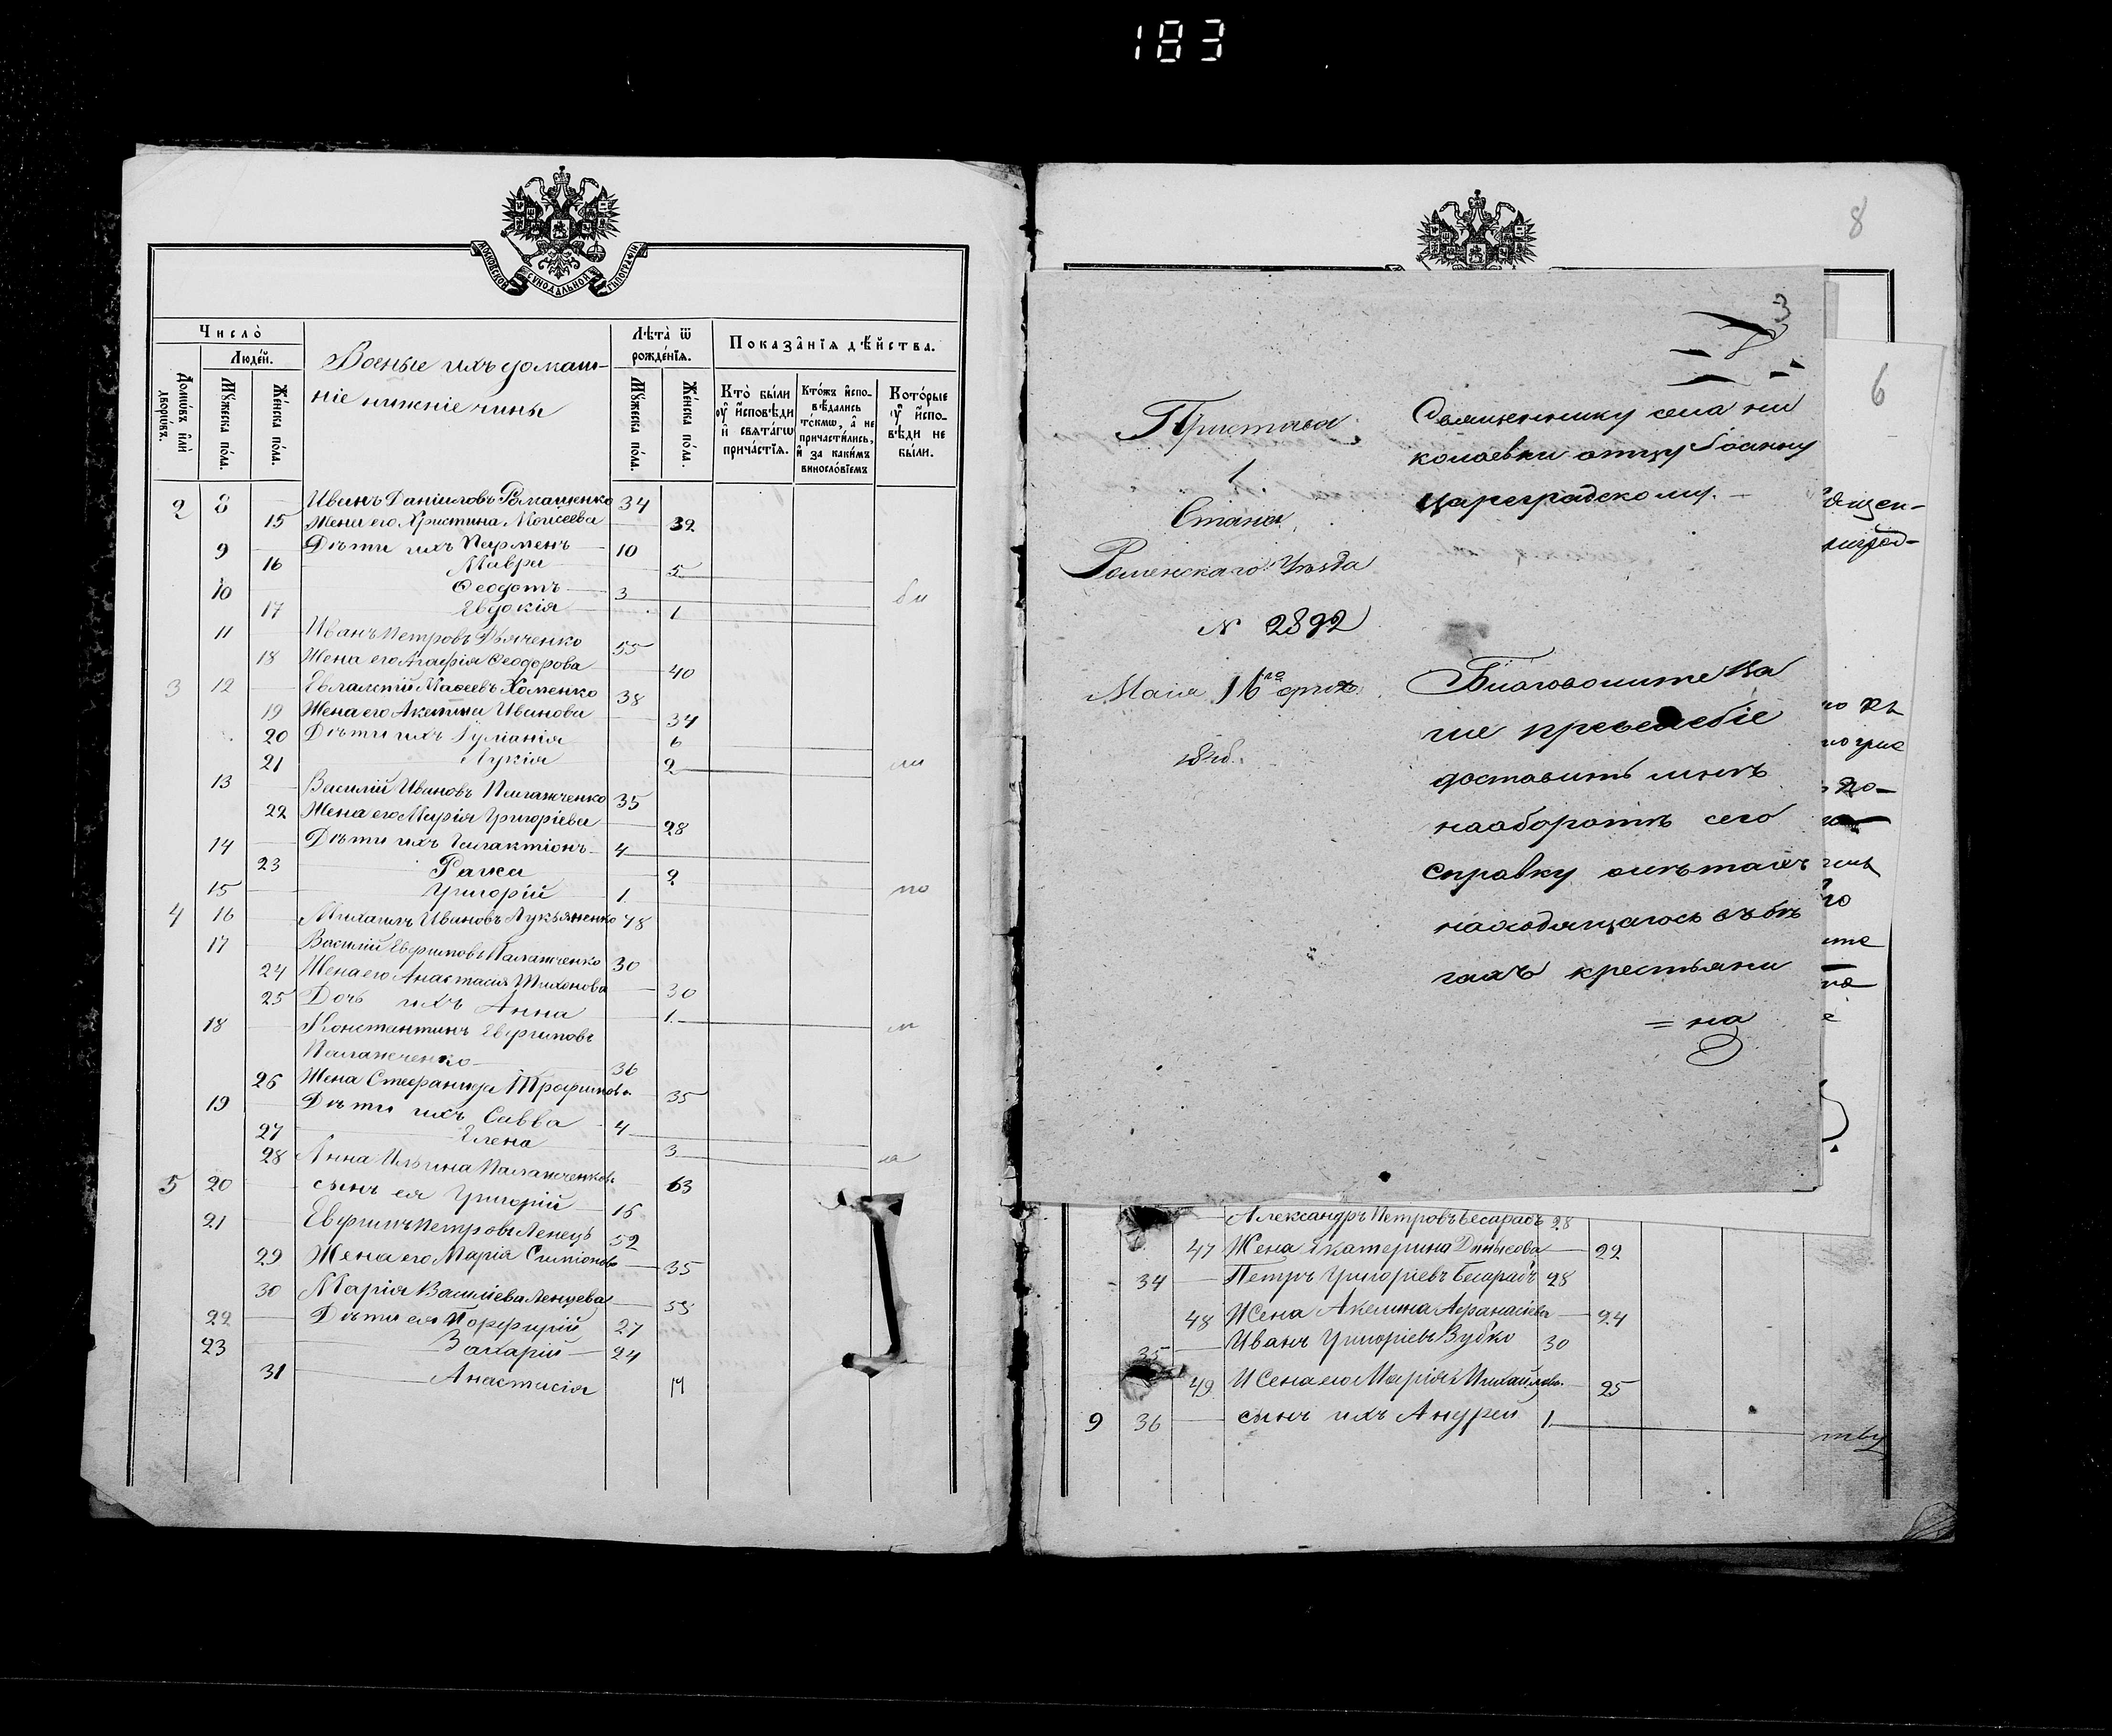 183
МОСКОВСКОЙ СУНОДАЛЬНОЙ ТИПОГРАФІИ
Число̀
Люде́й.
Домѡ́въ и҆лѝ дворѡ́въ.
Мꙋ́жеска по́ла.
Же́нска по́ла.
Военые ихъ домаш-
ніе нижніе чины
Лѣ́та ѿ рожде́нїѧ.
Мꙋ́жеска по́ла.
Же́нска по́ла.
Показа̑нїѧ дѣ́йства.
Кто̀ бы́ли ᲂу҆ и҆́сповѣди и҆ свѧта́гѡ прича́стїѧ.
Кто́жъ и҆сповѣ́дались то́кмѡ, а҆ не причасти́лись, и҆ за каки́мъ виносло́вїемъ
Кото́рые ᲂу҆ и҆́сповѣди не бы́ли.
2 8 Иванъ Даніиловъ Ромащенко 34
15 Жена его Христина Моисеева 32
9 Дѣти ихъ Парменъ 10
16 Мавра 5
10 Ѳеодотъ 3 бы
17 Евдокія 1
11 Иванъ Петровъ Дьяченко 55
18 Жена его Агафія Ѳеодорова 40
3 12 Евлампій Маѳеевъ Хоменко 38
19 Жена его Акилина Иванова 34
20 Дѣти ихъ Іуліанія 6
21 Лукія 2 ли
13 Василій Ивановъ Паламченко 35
22 Жена его Марія Григоріева 28
14 Дѣти ихъ Галактіонъ 4
23 Раиса 2
15 Григорій 1 по
4 16 Михаилъ Ивановъ Лукьяненко 48
17 Василій Евфимовъ Паламченко 30
24 Жена его Анастасія Тихонова 30
25 Дочь ихъ Анна 1
18 Константинъ Евфимовъ
Паламченко 36
26 Жена Стефанида Трофимова 35
19 Дѣти ихъ Савва 4
27 Елена 3
28 Анна Ильина Паламченкова 63
5 20 сынъ ея Григорій 15
21 Евфимъ Петровъ Ленецъ 52
29 Жена его Марія Симіонова 35
30 Марія Василіева Ленцева 55
22 Дѣти ея Порфирій 27
23 Захарій 24
31 Анастасія 19
8
3
6
Пристава
1
Стана
Роменскаго Уѣзда
№ 2892
Маія 16го дня
Священнику села Ни
колаевки отцу Іоанну
Цареградскому.
Благоволите Ва
ше
доставить мнѣ
наоборотѣ сего
справку о лѣтахъ
находящагося въ бѣ
гахъ крестьяни
= на
Александръ Петровъ Бесарабъ 28
47 Жена Екатерина Денисова 22
34 Петръ Григоріевъ Бесарабъ 28
48 Жена Акилина Афанасіева 24
35 Иванъ Григоріевъ Зубко 30
49 Жена его Марія Михайлова 25
9 36 сынъ ихъ Андрей 1 тву